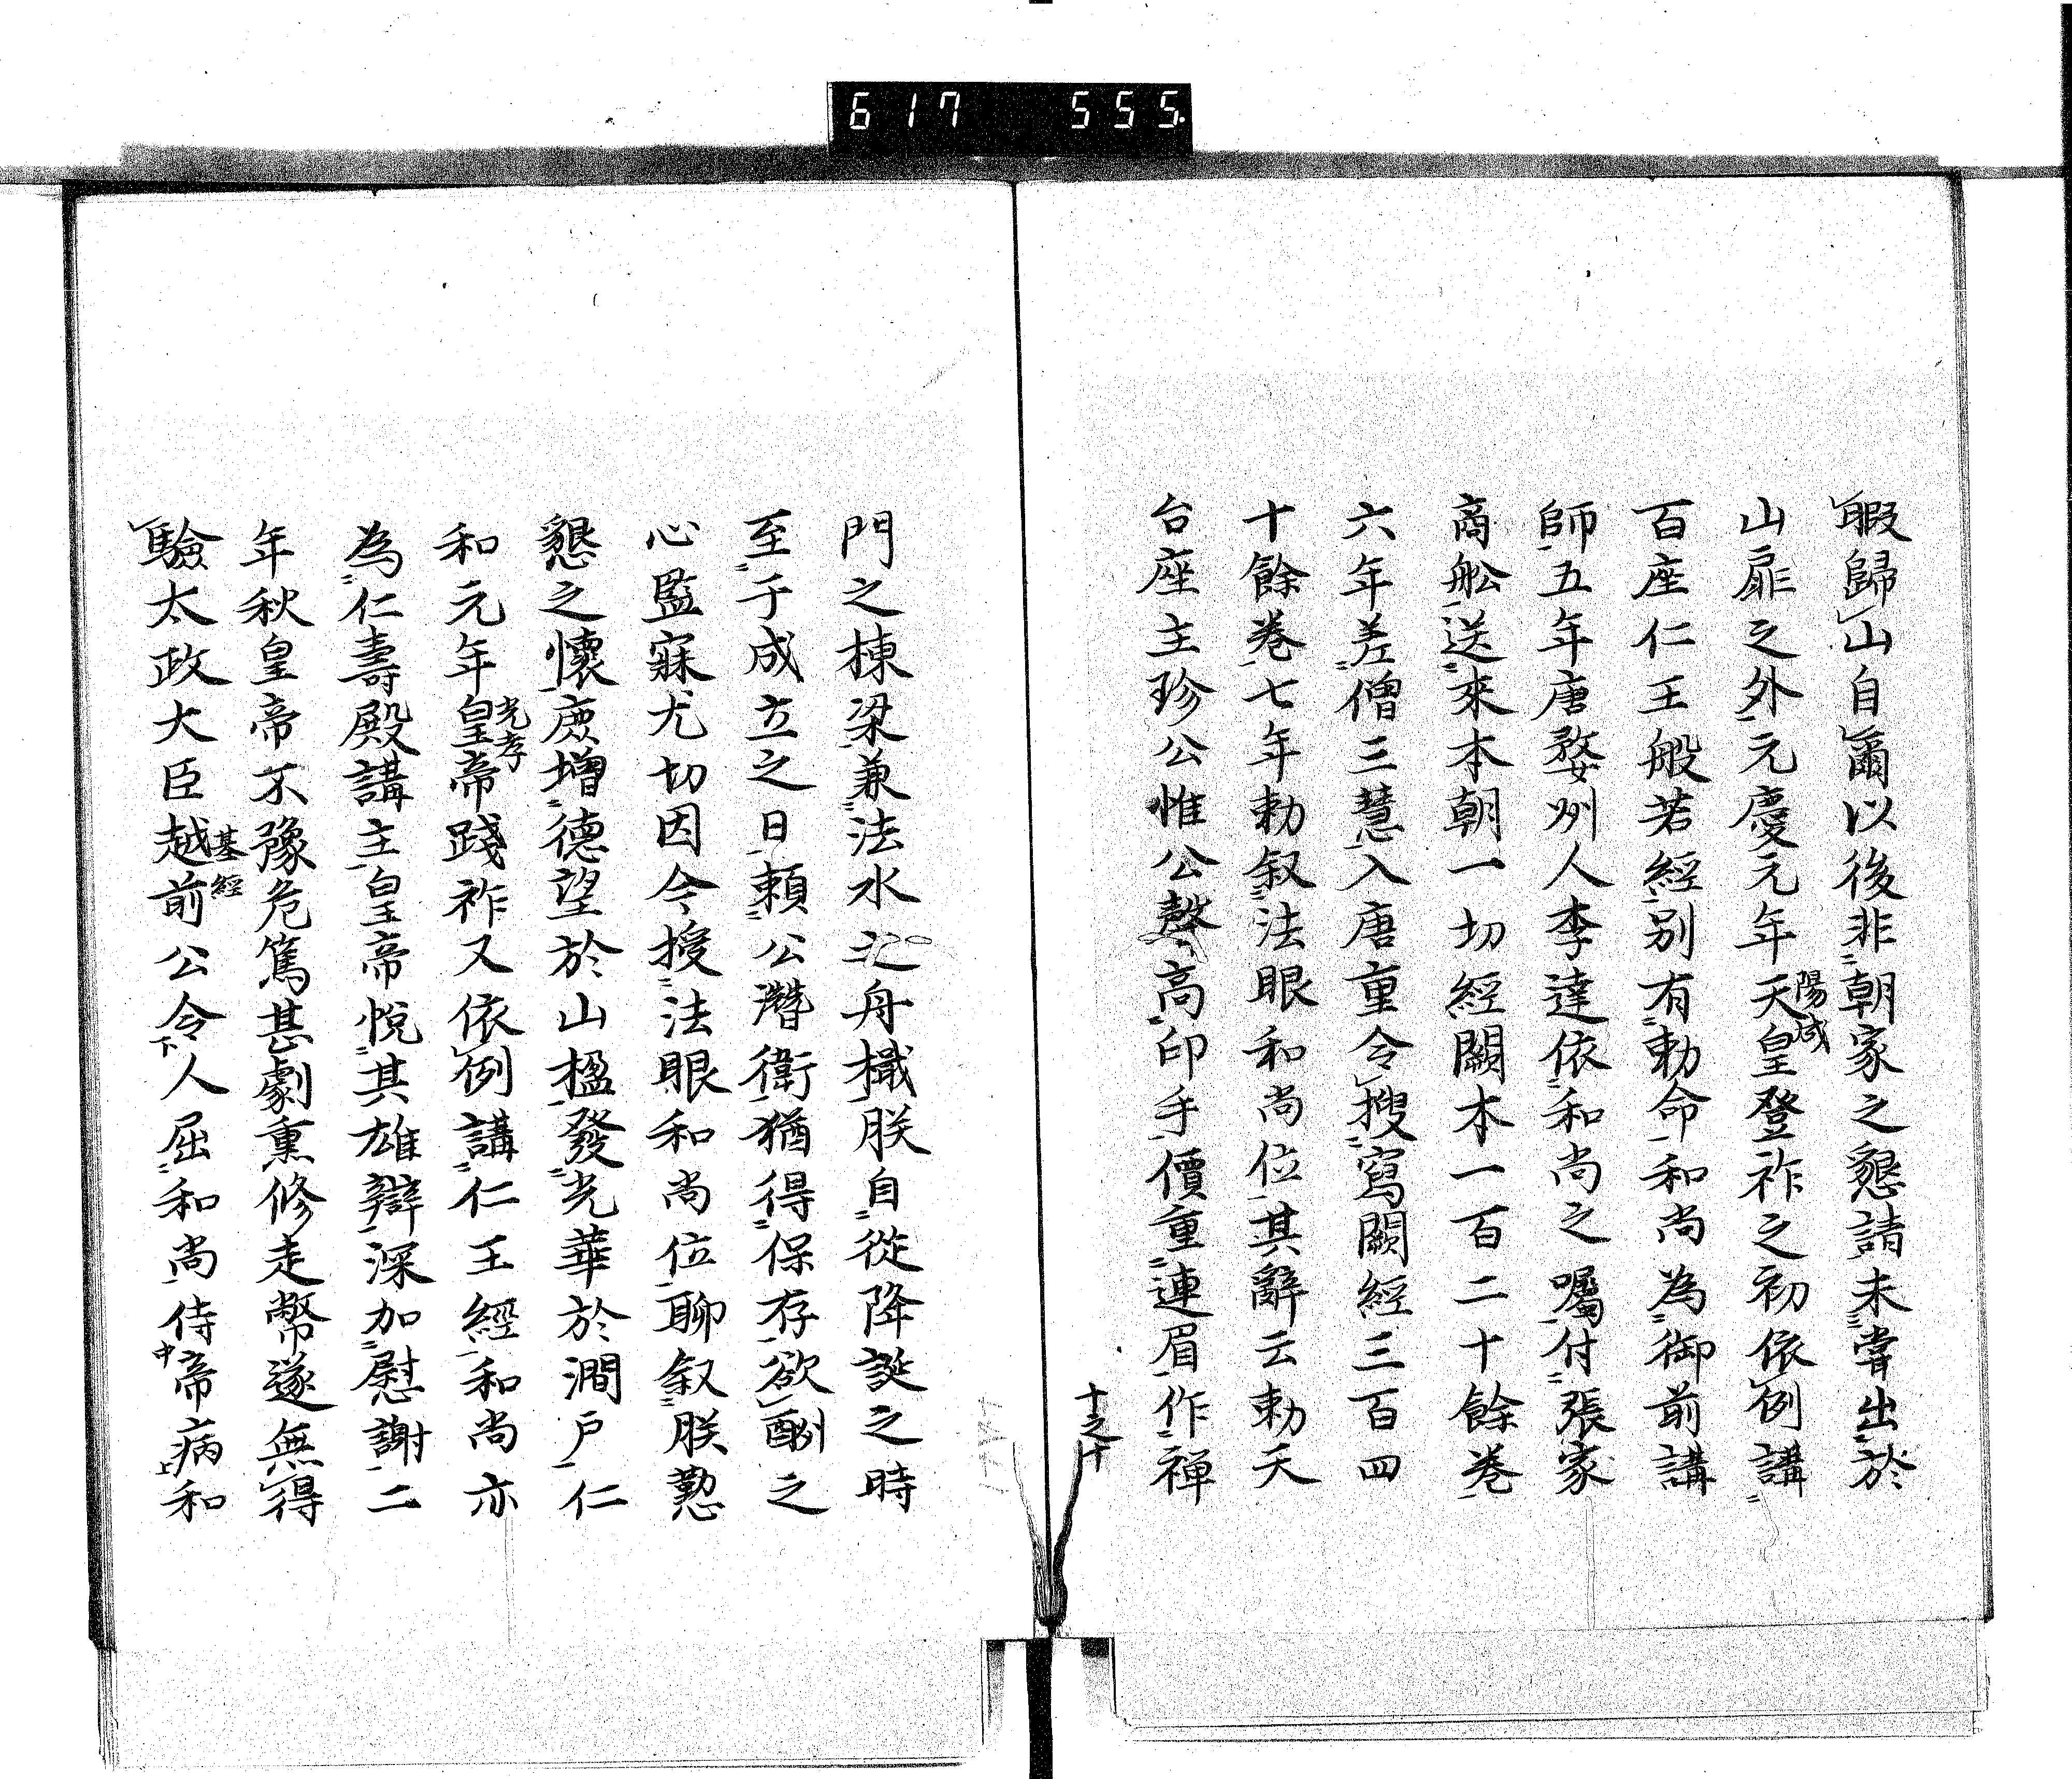 617 555
暇歸山自爾以後非朝家之懇請未嘗出於
山扉之外元慶元年天皇登祚之初依例講
陽成
百座仁王般若經別有勅命和尚為御前講
師五年唐婺州人李達依和尚之囑付張家
商舩送來本朝一切經闕本一百二十餘巻
六年差僧三慧入唐重令搜寫闕經三百四
十餘巻七年勅叙法眼和尚位其辭云勅天
台座主珍公惟公聲高印手價重連眉作禅
十之十
門之棟梁兼法水之舟檝朕自從降誕之時
至于成立之日頼公潛衛猶得保存欲酬之
心監寐尤切因令授法眼和尚位聊叙朕懃
懇之懷庶増德望於山楹發光華於澗戸仁
和元年皇帝踐祚又依例講仁王經和尚亦
光孝
為仁壽殿講主皇帝悅其雄辯深加慰謝二
年秋皇帝不豫危篤甚劇熏修走幣遂無得
驗太政大臣越前公令人屈和尚侍帝病和
基經
下 中 上